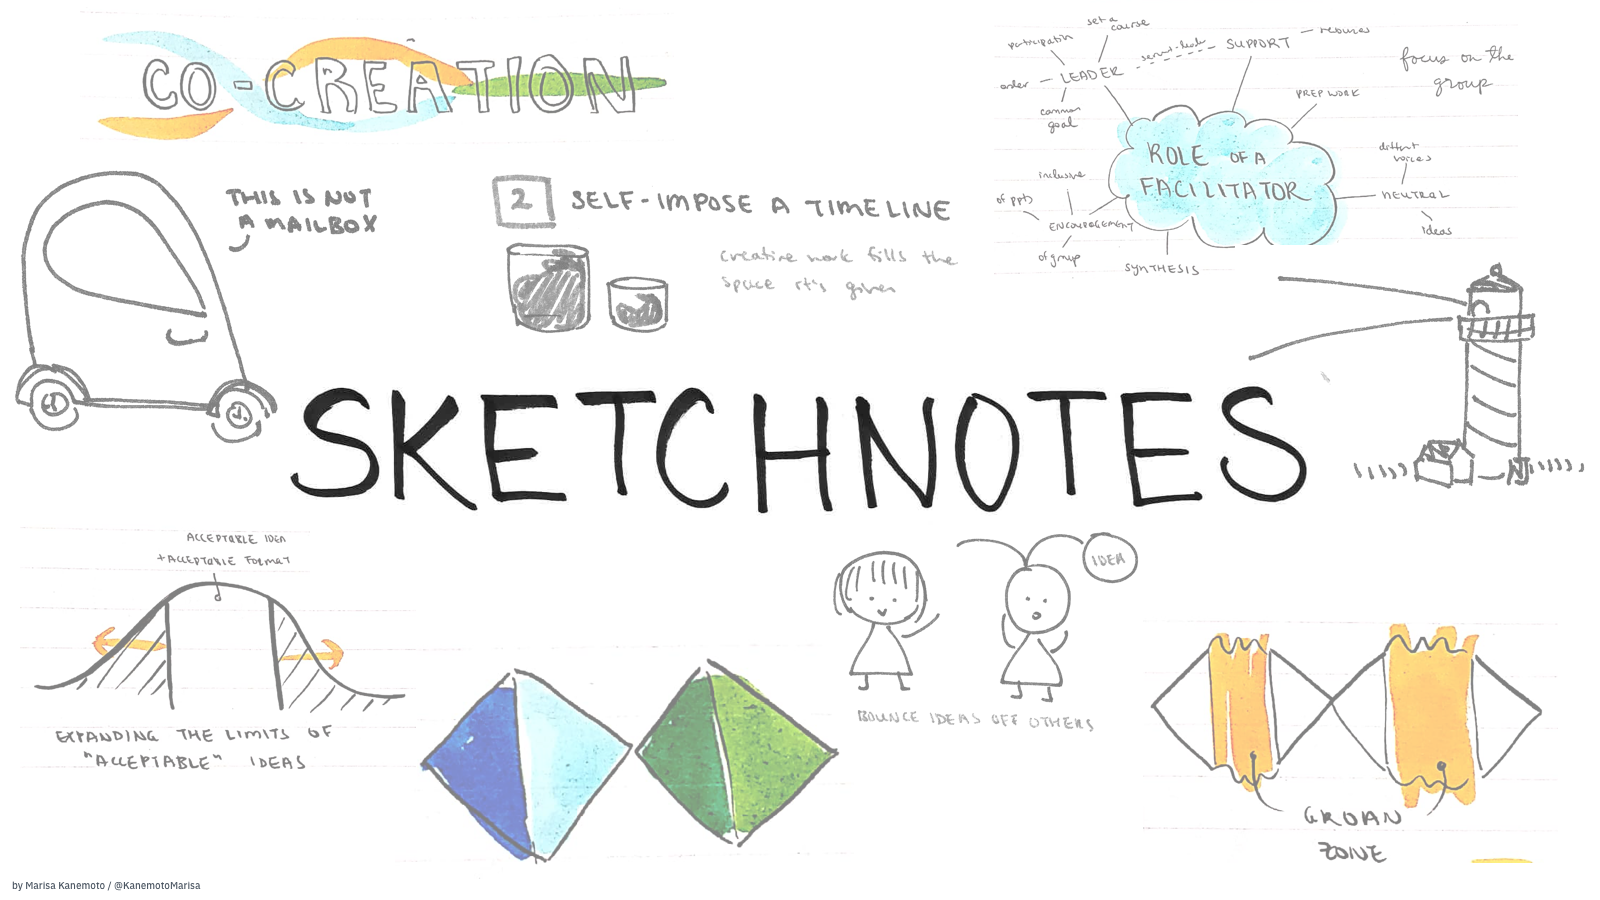 CO-CREATION
THIS IS NOT
A MAILBOX
2 SELF-IMPOSE A TIMELINE
creative work fills the
space it's given
set a
course
participation
LEADER
order
common
goal
servant-leader
SUPPORT
resources
focus on the
group
PREP WORK
ROLE OF A
FACILITATOR
different
voices
NEUTRAL
ideas
inclusive
of ppts
ENCOURAGEMENT
of group
SYNTHESIS
SKETCHNOTES
ACCEPTABLE IDEA
+ACCEPTABLE FORMAT
EXPANDING THE LIMITS OF
"ACCEPTABLE" IDEAS
IDEA
BOUNCE IDEAS OFF OTHERS
GROAN
ZONE
by Marisa Kanemoto / @KanemotoMarisa